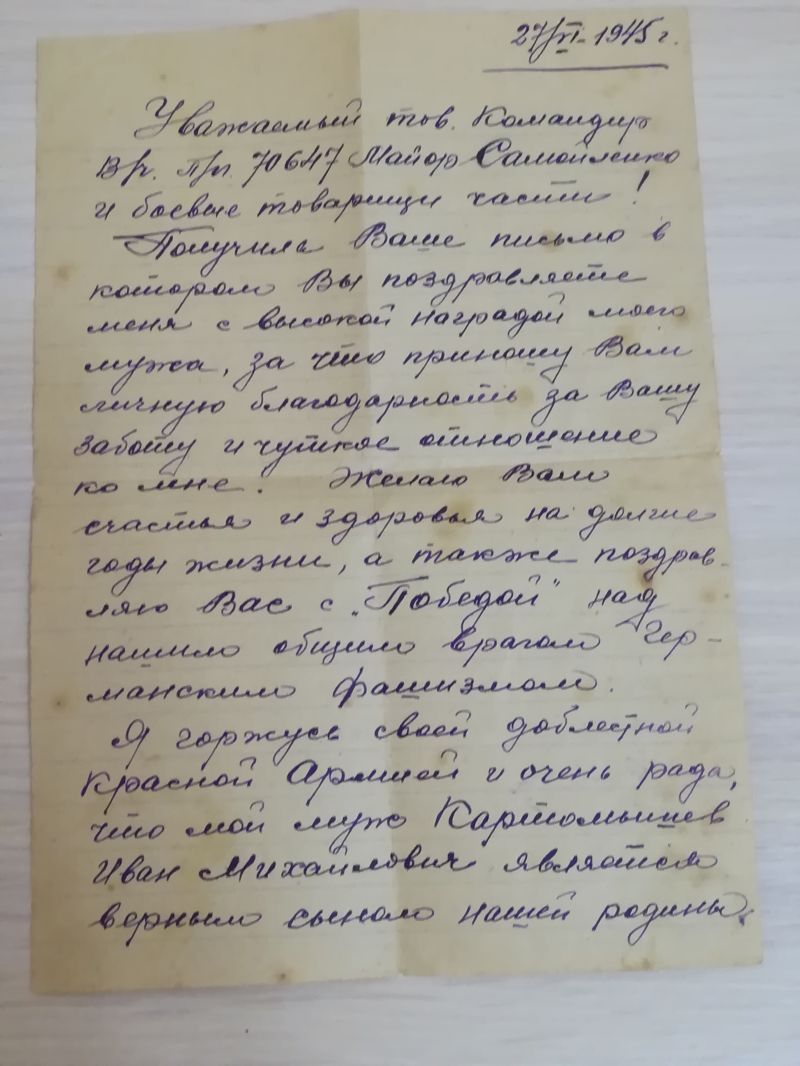 27/VI-1945 г.
Уважаемый тов. Командир
В/ч. пп. 70647 Майор Самойленко
и боевые товарищи части!
Получила Ваше письмо в
котором Вы поздравляете
меня с высокой наградой моего
мужа, за что приношу Вам
личную благодарность за Вашу
заботу и чуткое отношение
ко мне. Желаю Вам
счастья и здоровья на долгие
годы жизни, а также поздрав-
ляю Вас с „Победой" над
нашим общим врагом Гер-
манским фашизмом.
Я горжусь своей доблестной
Красной Армией и очень рада,
что мой муж Картомышев
Иван Михайлович является
верным сыном нашей родины.